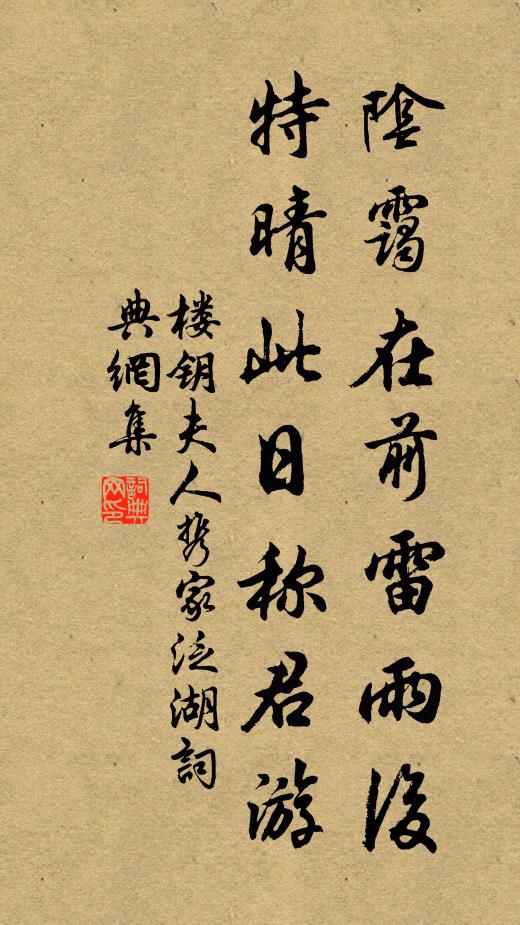 陰靄在前雷雨後
特晴此日称君游
楼钥夫人携家泛湖詞
典網集
詞典网印